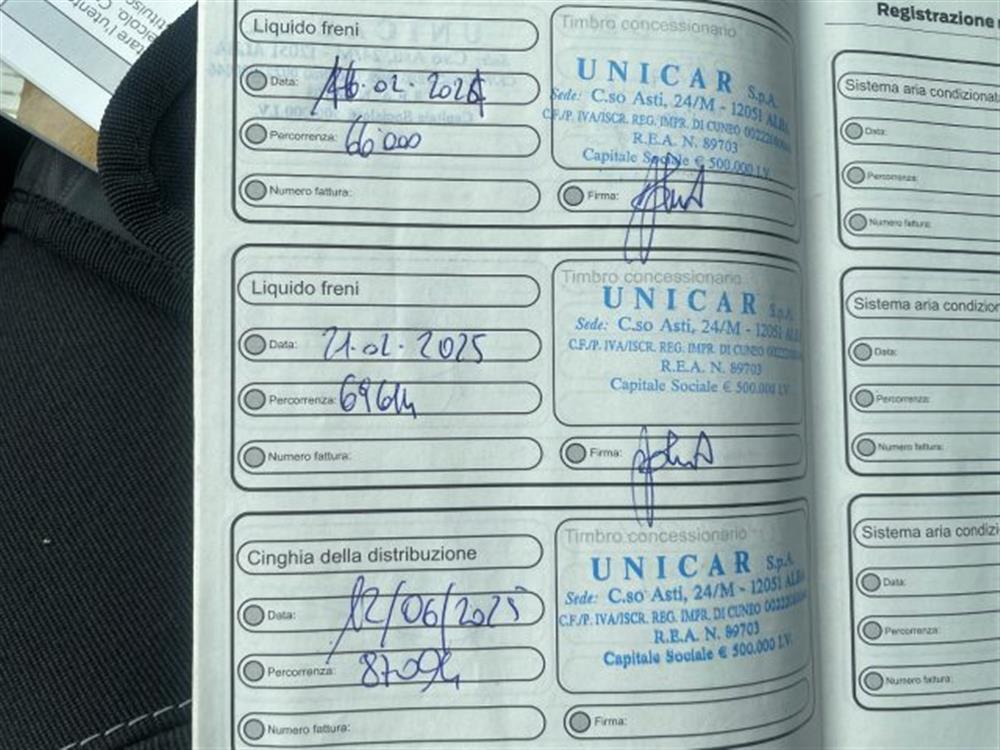 Liquido freni
Timbro concessionario
Data: 16.02.2024
UNICAR S.p.A.
Sede: C.so Asti, 24/M - 12051 ALBA
Percorrenza: 66000
C.F./P. IVA/ISCR. REG. IMPR. DI CUNEO
R.E.A. N. 89703
Capitale Sociale € 500.000 I.V.
Numero fattura:
Firma:
Liquido freni
Timbro concessionario
UNICAR S.p.A.
Data: 21.02.2025
Sede: C.so Asti, 24/M - 12051
C.F./P. IVA/ISCR. REG. IMPR. DI CUNEO
R.E.A. N. 89703
Percorrenza:
Capitale Sociale € 500.000 I.V.
Numero fattura:
Firma:
Cinghia della distribuzione
Timbro concessionario
UNICAR S.p.A.
Data: 12/06/2025
Sede: C.so Asti, 24/M - 12051 ALBA
C.F./P. IVA/ISCR. REG. IMPR. DI CUNEO
R.E.A. N. 89703
Percorrenza: 87094
Capitale Sociale € 500.000 I.V.
Numero fattura:
Firma:
Registrazione
Sistema aria condizionat
Data:
Percorrenza:
Numero fattura:
Sistema aria condizion
Data:
Percorrenza:
Numero fattura:
Sistema aria condizi
Data:
Percorrenza:
Numero fattura: